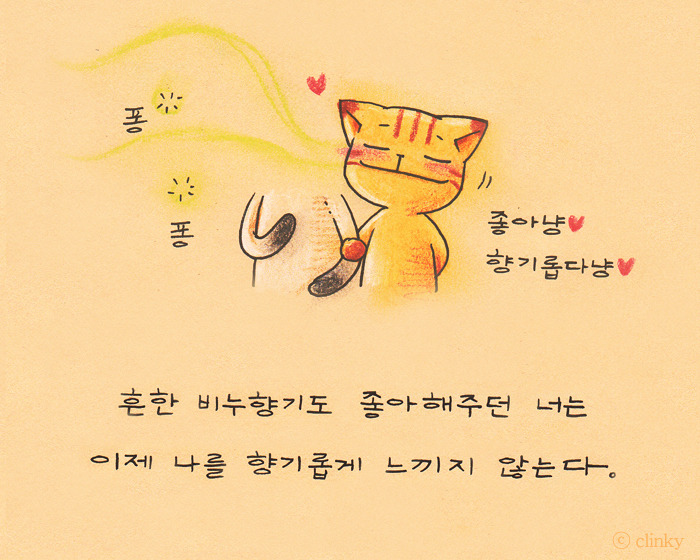 퐁
퐁
좋아냥♥
향기롭다냥♥
흔한 비누향기도 좋아해주던 너는
이제 나를 향기롭게 느끼지 않는다.
ⓒ clinky